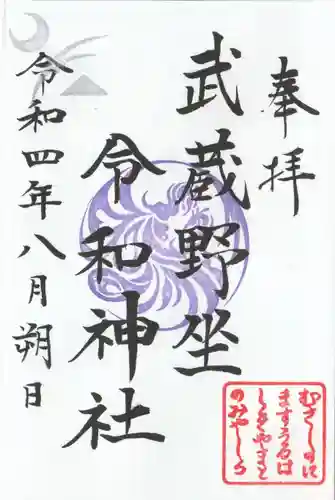 奉拝
武蔵野坐
令和神社
令和四年八月朔日
むさしのに
ますうるは
しきやまと
のみやしろ